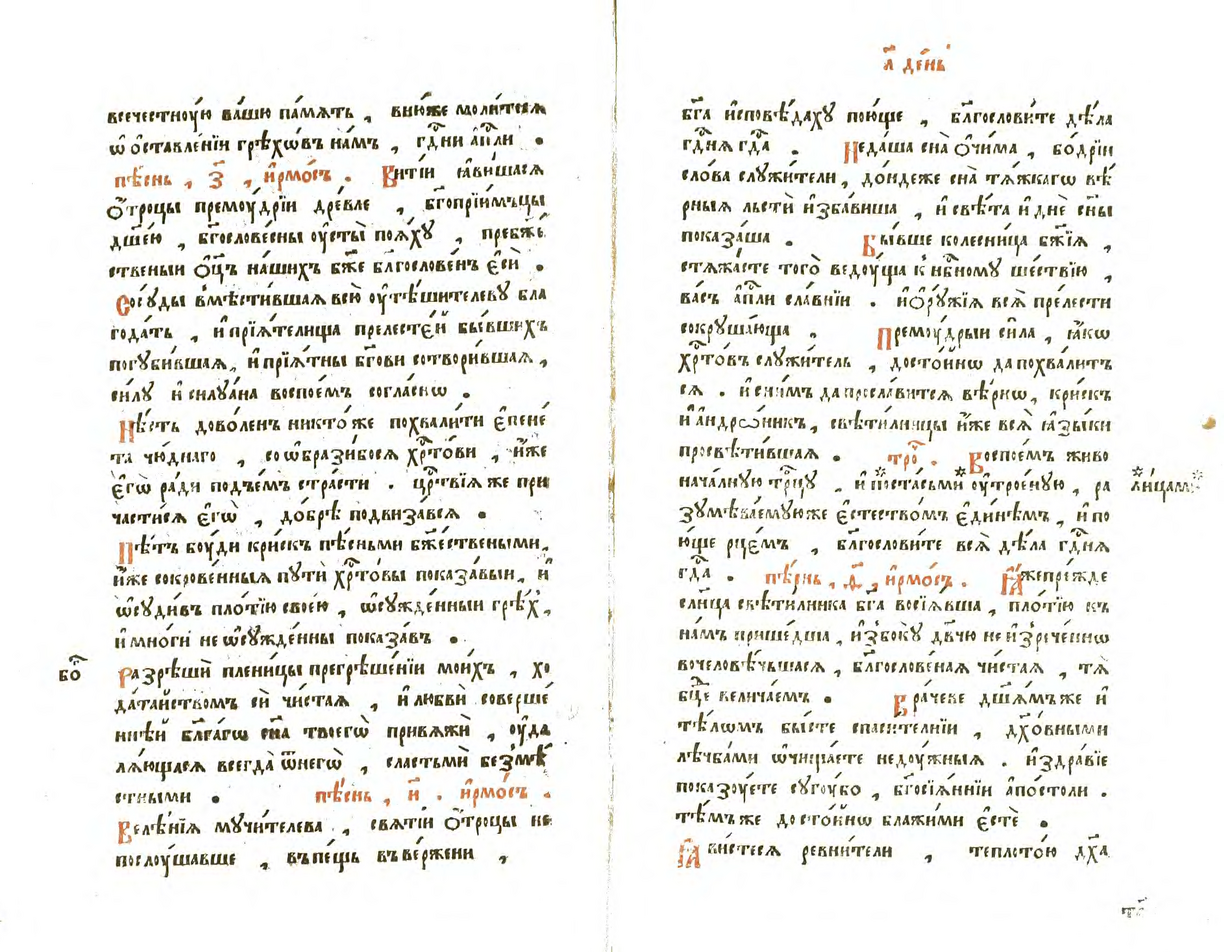 всечестнꙋ́ю ва́шꙋ па́мѧть , вню́же моли́тесѧ
ѡ҆ ѡ҆ставле́нїи грѣхѡ́въ на́мъ , гдⷭ҇ни а҆пⷭ҇ли .
пѣ́снь , з҃ , і҆рмо́съ . Вити́и ꙗ҆ви́шасѧ
ѻ҆́троцы премоу́дрїи дре́вле , бг҃опрїи́мъцы
дш҃е́ю , бг҃осло́весны оу҆сты̀ поѧ́хꙋ , пребж҃е́
ственыи ѻ҆ц҃ъ на́шихъ бж҃е блг҃ослове́нъ є҆сѝ .
Сосꙋ́ды вмѣсти́вшаѧ всю̀ оу҆тѣ́шителевꙋ бла
года́ть , и҆ прїѧ́телища преле́стей бы́вшихъ
погꙋби́вшаѧ , и҆ прїѧ́тны бг҃ови сотвори́вшаѧ ,
си́лꙋ и҆ силꙋа́на воспое́мъ согла́снѡ .
Нѣ́сть дово́ленъ никто́же похвали́ти є҆пене́
та чю́днаго , соѡбрази́босѧ хрⷭ҇то́ви , и҆́же
є҆гѡ̀ ра́ди подъе́мъ стра́сти . црⷭ҇твїѧ же при
части́сѧ є҆гѡ̀ , до́брѣ подвиза́всѧ .
Пѣ́тъ боу́ди кри́скъ пѣ́сньми бж҃е́ствеными ,
и҆́же сокрове́нныѧ пꙋтѝ хрⷭ҇то́вы показа́выи , и҆
ѡ҆сꙋди́въ пло́тїю свое́ю , ѡ҆сꙋжде́нныи грѣ́х ,
и҆ мно́ги не ѡ҆сꙋжде́нны показа́въ .
бо҆́
Разрѣшѝ плени́цы прегрѣше́нїи мои́хъ , хо
да́тайствомъ сѝ чи́стаѧ , и҆ любвѝ соверше́
ннѣй блг҃а́гѡ сн҃а твоегѡ̀ привѧжѝ , оу҆да
лѧ́ющасѧ всегда̀ ѿнегѡ̀ , сластьмѝ безмѣ́
стными . пѣ́снь , и҃ . і҆рмо́съ .
Велѣ́нїѧ мꙋчи́телева , свѧті́и ѻ҆́троцы не
послоу́шавше , въ пе́щь въве́ржени ,
л҃ де́нь
бг҃а и҆сповѣ́дахꙋ пою́ще , блг҃ослови́те дѣ́ла
гдⷭ҇нѧ гдⷭ҇а . Неда́ша сна̀ ѻ҆чи́ма , бо́дрїи
сло́ва слꙋжи́тели , до́ндеже сна̀ тѧ́жкагѡ вѣ́
рныѧ льстѝ и҆зба́виша , и҆ свѣ́та и҆ днѐ сн҃ы
показа́ша . Бы́вше колесни́ца бж҃їѧ ,
стѧжа́сте того̀ ведоу́ща к нбⷭ҇номꙋ ше́ствїю ,
ва́съ а҆пⷭ҇ли сла́внїи . и҆ ѻ҆рꙋ́жїѧ всѧ̀ пре́лести
сокрꙋша́юща . Премоу́дрыи си́ла , ꙗ҆́кѡ
хрⷭ҇то́въ слꙋжи́тель , досто́йнѡ да похва́литъ
сѧ . и҆ сни́мъ да просла́витсѧ вѣ́рнѡ , кри́скъ
и҆ андро́никъ , свѣти́лницы и҆́же всѧ̀ ꙗ҆зы́ки
просвѣти́вшаѧ . трⷪ҇ . Воспое́мъ живо
нача́лнꙋю трⷪ҇цꙋ , и҆поста́сьми оу҆трое́нꙋю , ра
ли́цами
зꙋмѣва́емꙋюже є҆стество́мъ є҆ди́нѣмъ , и҆ по
ю́ще рце́мъ , блг҃ослови́те всѧ̀ дѣ́ла гдⷭ҇нѧ
гдⷭ҇а . пѣ́снь , ѳ҃ , і҆рмо́съ . Ꙗ҆́жепре́жде
сл҃нца свѣти́лника бг҃а восїѧ́вша , пло́тїю къ
на́мъ прише́дша , и҆з̾бокꙋ̀ дв҃чю не и҆зрече́ннѡ
вочеловѣ́чьшаѧсѧ , блг҃ослове́наѧ чи́стаѧ , тѧ̀
бц҃е велича́емъ . Враче́ве дш҃ѧ́мъже и҆
тѣ́лѡмъ бы́сте спаси́телнїи , дх҃о́вными
лѣчба́ми ѡ҆чища́ете недоу́жныѧ . и҆ здра́вїе
показоу́ете сꙋгоу́бо , бг҃осїѧ́ннїи а҆по́столи .
тѣ́мъже досто́йнѡ блажи́ми є҆стѐ .
Ꙗ҆ви́стесѧ ревни́тели , теплото́ю дх҃а